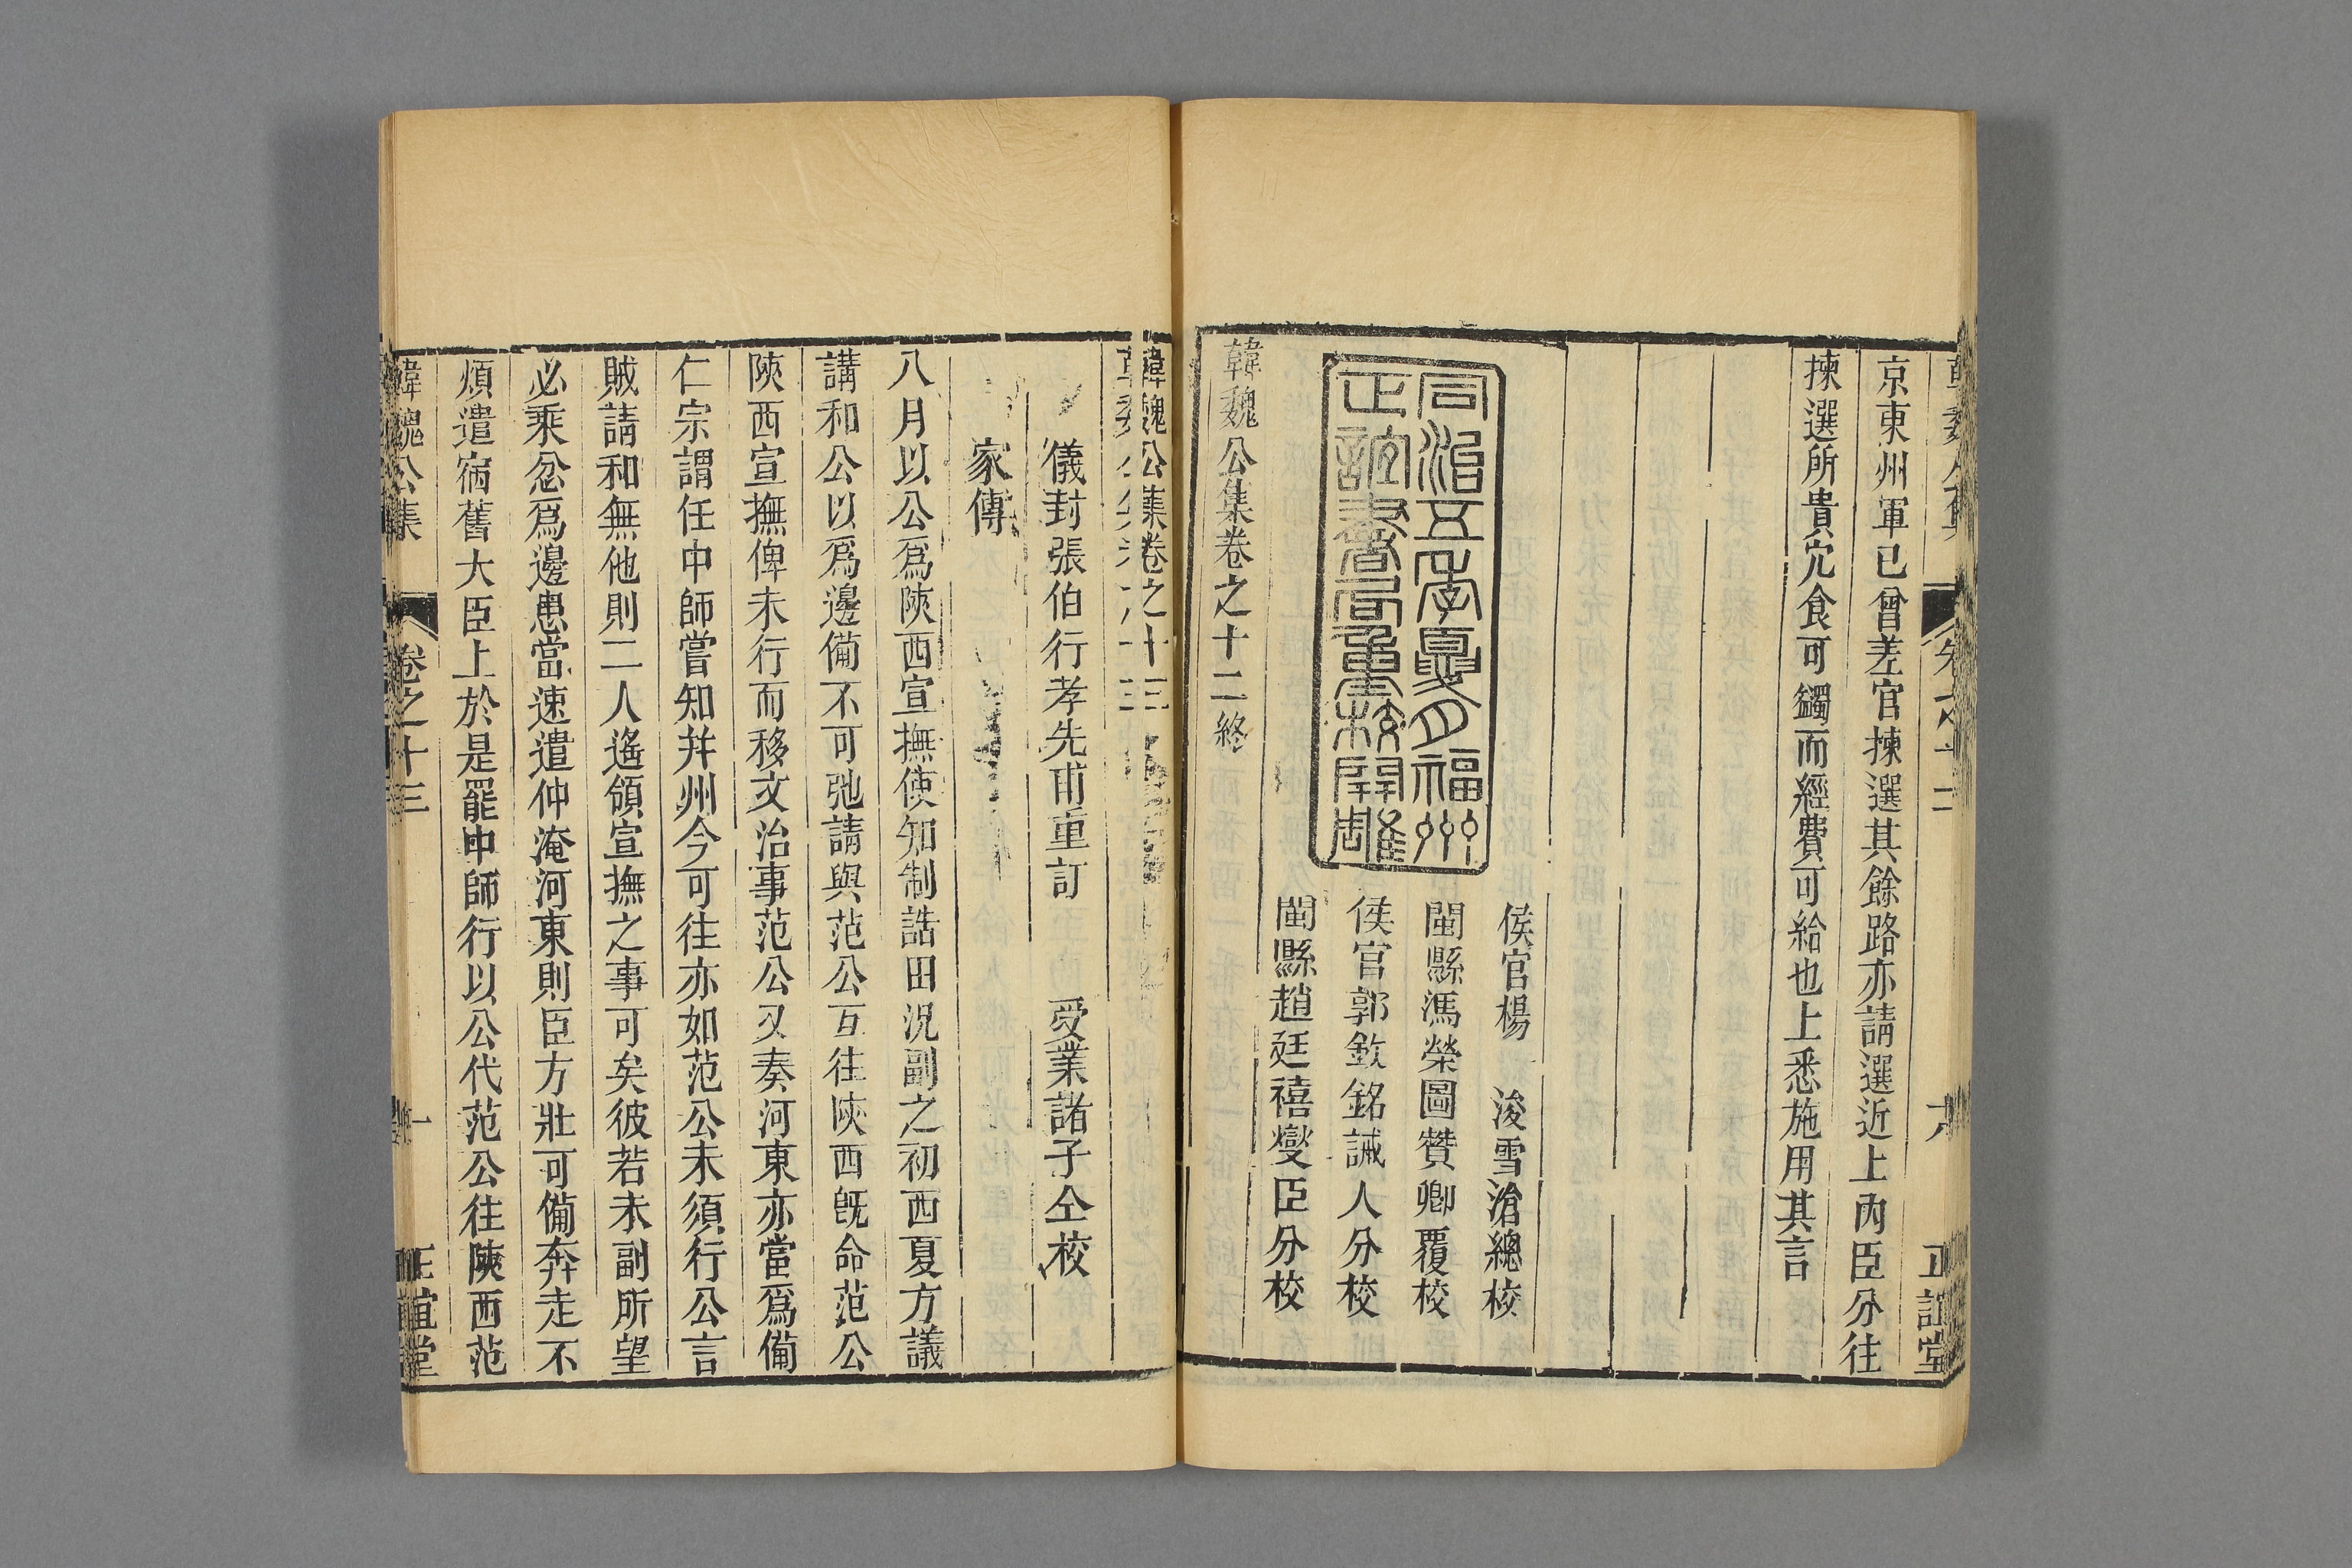 京東州軍已曾差官揀選其餘路亦請選近上內臣分往
揀選所貴冗食可蠲而經費可給也上悉施用其言
同治五年夏月福州
正誼書局重校開雕
侯官楊 浚雪滄總校
閩縣馮榮圖贊卿覆校
侯官郭欽銘誡人分校
閩縣趙廷禧燮臣分校
韓魏公集卷之十二終
韓魏公集卷之十三
儀封張伯行孝先甫重訂 受業諸子仝校
家傳
八月以公爲陝西宣撫使知制誥田況副之初西夏方議
講和公以爲邊備不可弛請與范公互往陝西旣命范公
陝西宣撫俾未行而移文治事范公又奏河東亦當爲備
仁宗謂任中師嘗知并州今可往亦如范公未須行公言
賊請和無他則二人遙領宣撫之事可矣彼若未副所望
必乘忿爲邊患當速遣仲淹河東則臣方壯可備奔走不
煩遣宿舊大臣上於是罷中師行以公代范公往陝西范
韓魏公集 卷之十三 一 正誼堂